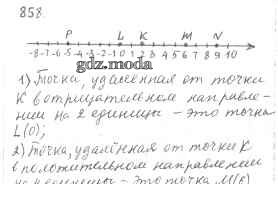 858.
P L K M N
-8 -7 -6 -5 -4 -3 -2 -1 0 1 2 3 4 5 6 7 8 9 10
gdz.moda
1) Точка, удалённая от точки
K в отрицательном направле-
нии на 2 единицы - это точка
L(0);
2) Точка, удалённая от точки K
в положительном направлении
на 4 единицы - это точка M(6)